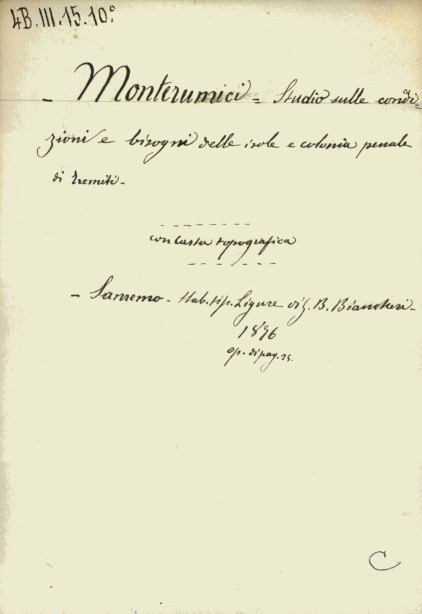 4B.III.15.10º
- Monterumici = Studio sulle condi-
zioni e bisogni delle isole e colonia penale
di Tremiti -
con Carta topografica
- Sanremo - Stab. tip. Ligure di G. B. Biancheri -
1896
op. di pag. 25.
C